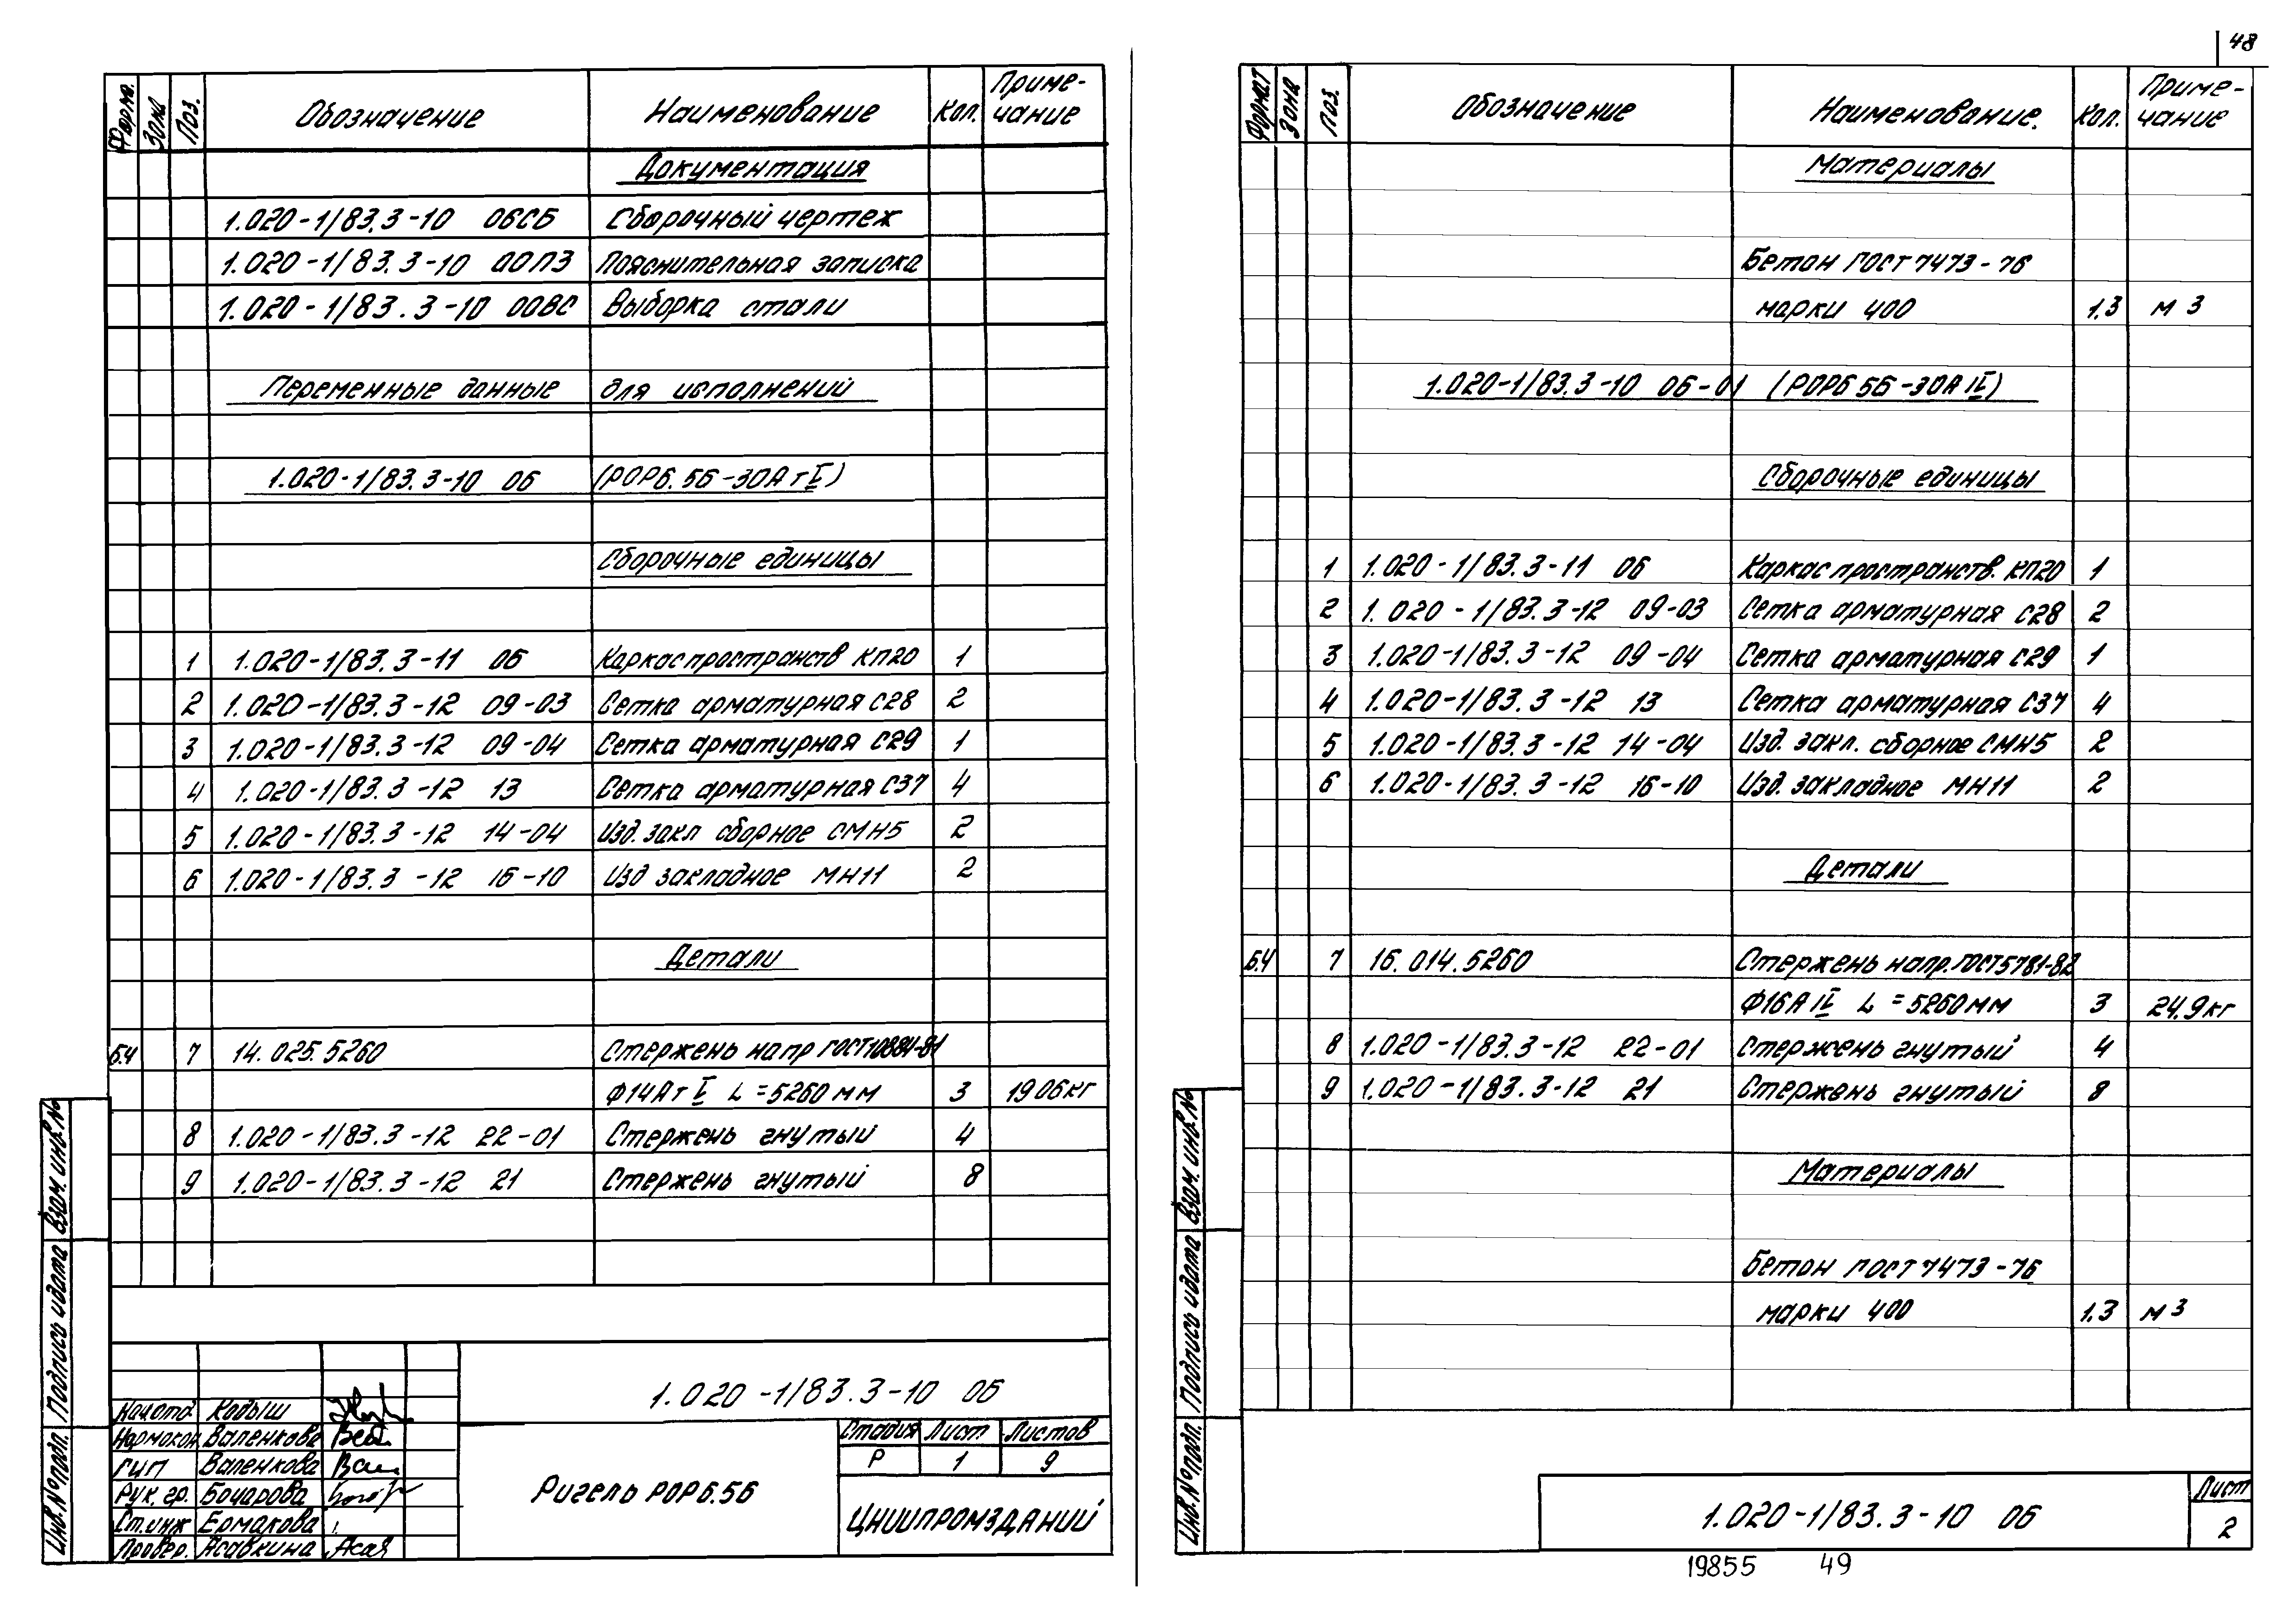 48
Форма. Зона Поз. Обозначение Наименование Кол. Приме-
чание
Документация
1.020-1/83.3-10 06СБ Сборочный чертеж
1.020-1/83.3-10 00ПЗ Пояснительная записка
1.020-1/83.3-10 00ВС Выборка стали
Переменные данные для исполнений
1.020-1/83.3-10 06 (РОР6.56-30АтV)
Сборочные единицы
1 1.020-1/83.3-11 06 Каркас пространств КП20 1
2 1.020-1/83.3-12 09-03 Сетка арматурная С28 2
3 1.020-1/83.3-12 09-04 Сетка арматурная С29 1
4 1.020-1/83.3-12 13 Сетка арматурная С37 4
5 1.020-1/83.3-12 14-04 Изд. закл сборное СМН5 2
6 1.020-1/83.3-12 16-10 Изд закладное МН11 2
Детали
Б.Ч 7 14.025.5260 Стержень напр ГОСТ10884-81
Ф14АтV L=5260 мм 3 19.06кг
8 1.020-1/83.3-12 22-01 Стержень гнутый 4
9 1.020-1/83.3-12 21 Стержень гнутый 8
Взам. инв.№
Подпись и дата
Инв.№ подл.
1.020-1/83.3-10 06
Нач.отд Кодыш
Нормокон. Валенкова
ГИП Валенкова
Рук. гр. Бочарова
Ст.инж Ермакова
Провер. Асавкина
Ригель РОР6.56
Стадия Лист Листов
Р 1 9
ЦНИИПРОМЗДАНИЙ
Формат Зона Поз. Обозначение Наименование. Кол. Приме-
чание
Материалы
Бетон ГОСТ 7473-76
марки 400 1.3 м3
1.020-1/83.3-10 06-01 (РОР6 56-30АIV)
Сборочные единицы
1 1.020-1/83.3-11 06 Каркас пространств. КП20 1
2 1.020-1/83.3-12 09-03 Сетка арматурная С28 2
3 1.020-1/83.3-12 09-04 Сетка арматурная С29 1
4 1.020-1/83.3-12 13 Сетка арматурная С37 4
5 1.020-1/83.3-12 14-04 Изд. закл. сборное СМН5 2
6 1.020-1/83.3-12 16-10 Изд. закладное МН11 2
Детали
Б.Ч 7 16.014.5260 Стержень напр. ГОСТ5781-82
Ф16АIV L=5260мм 3 24.9кг
8 1.020-1/83.3-12 22-01 Стержень гнутый 4
9 1.020-1/83.3-12 21 Стержень гнутый 8
Материалы
Бетон ГОСТ 7473-76
марки 400 1.3 м3
Взам. инв.№
Подпись и дата
Инв.№ подл.
1.020-1/83.3-10 06
Лист
2
19855 49